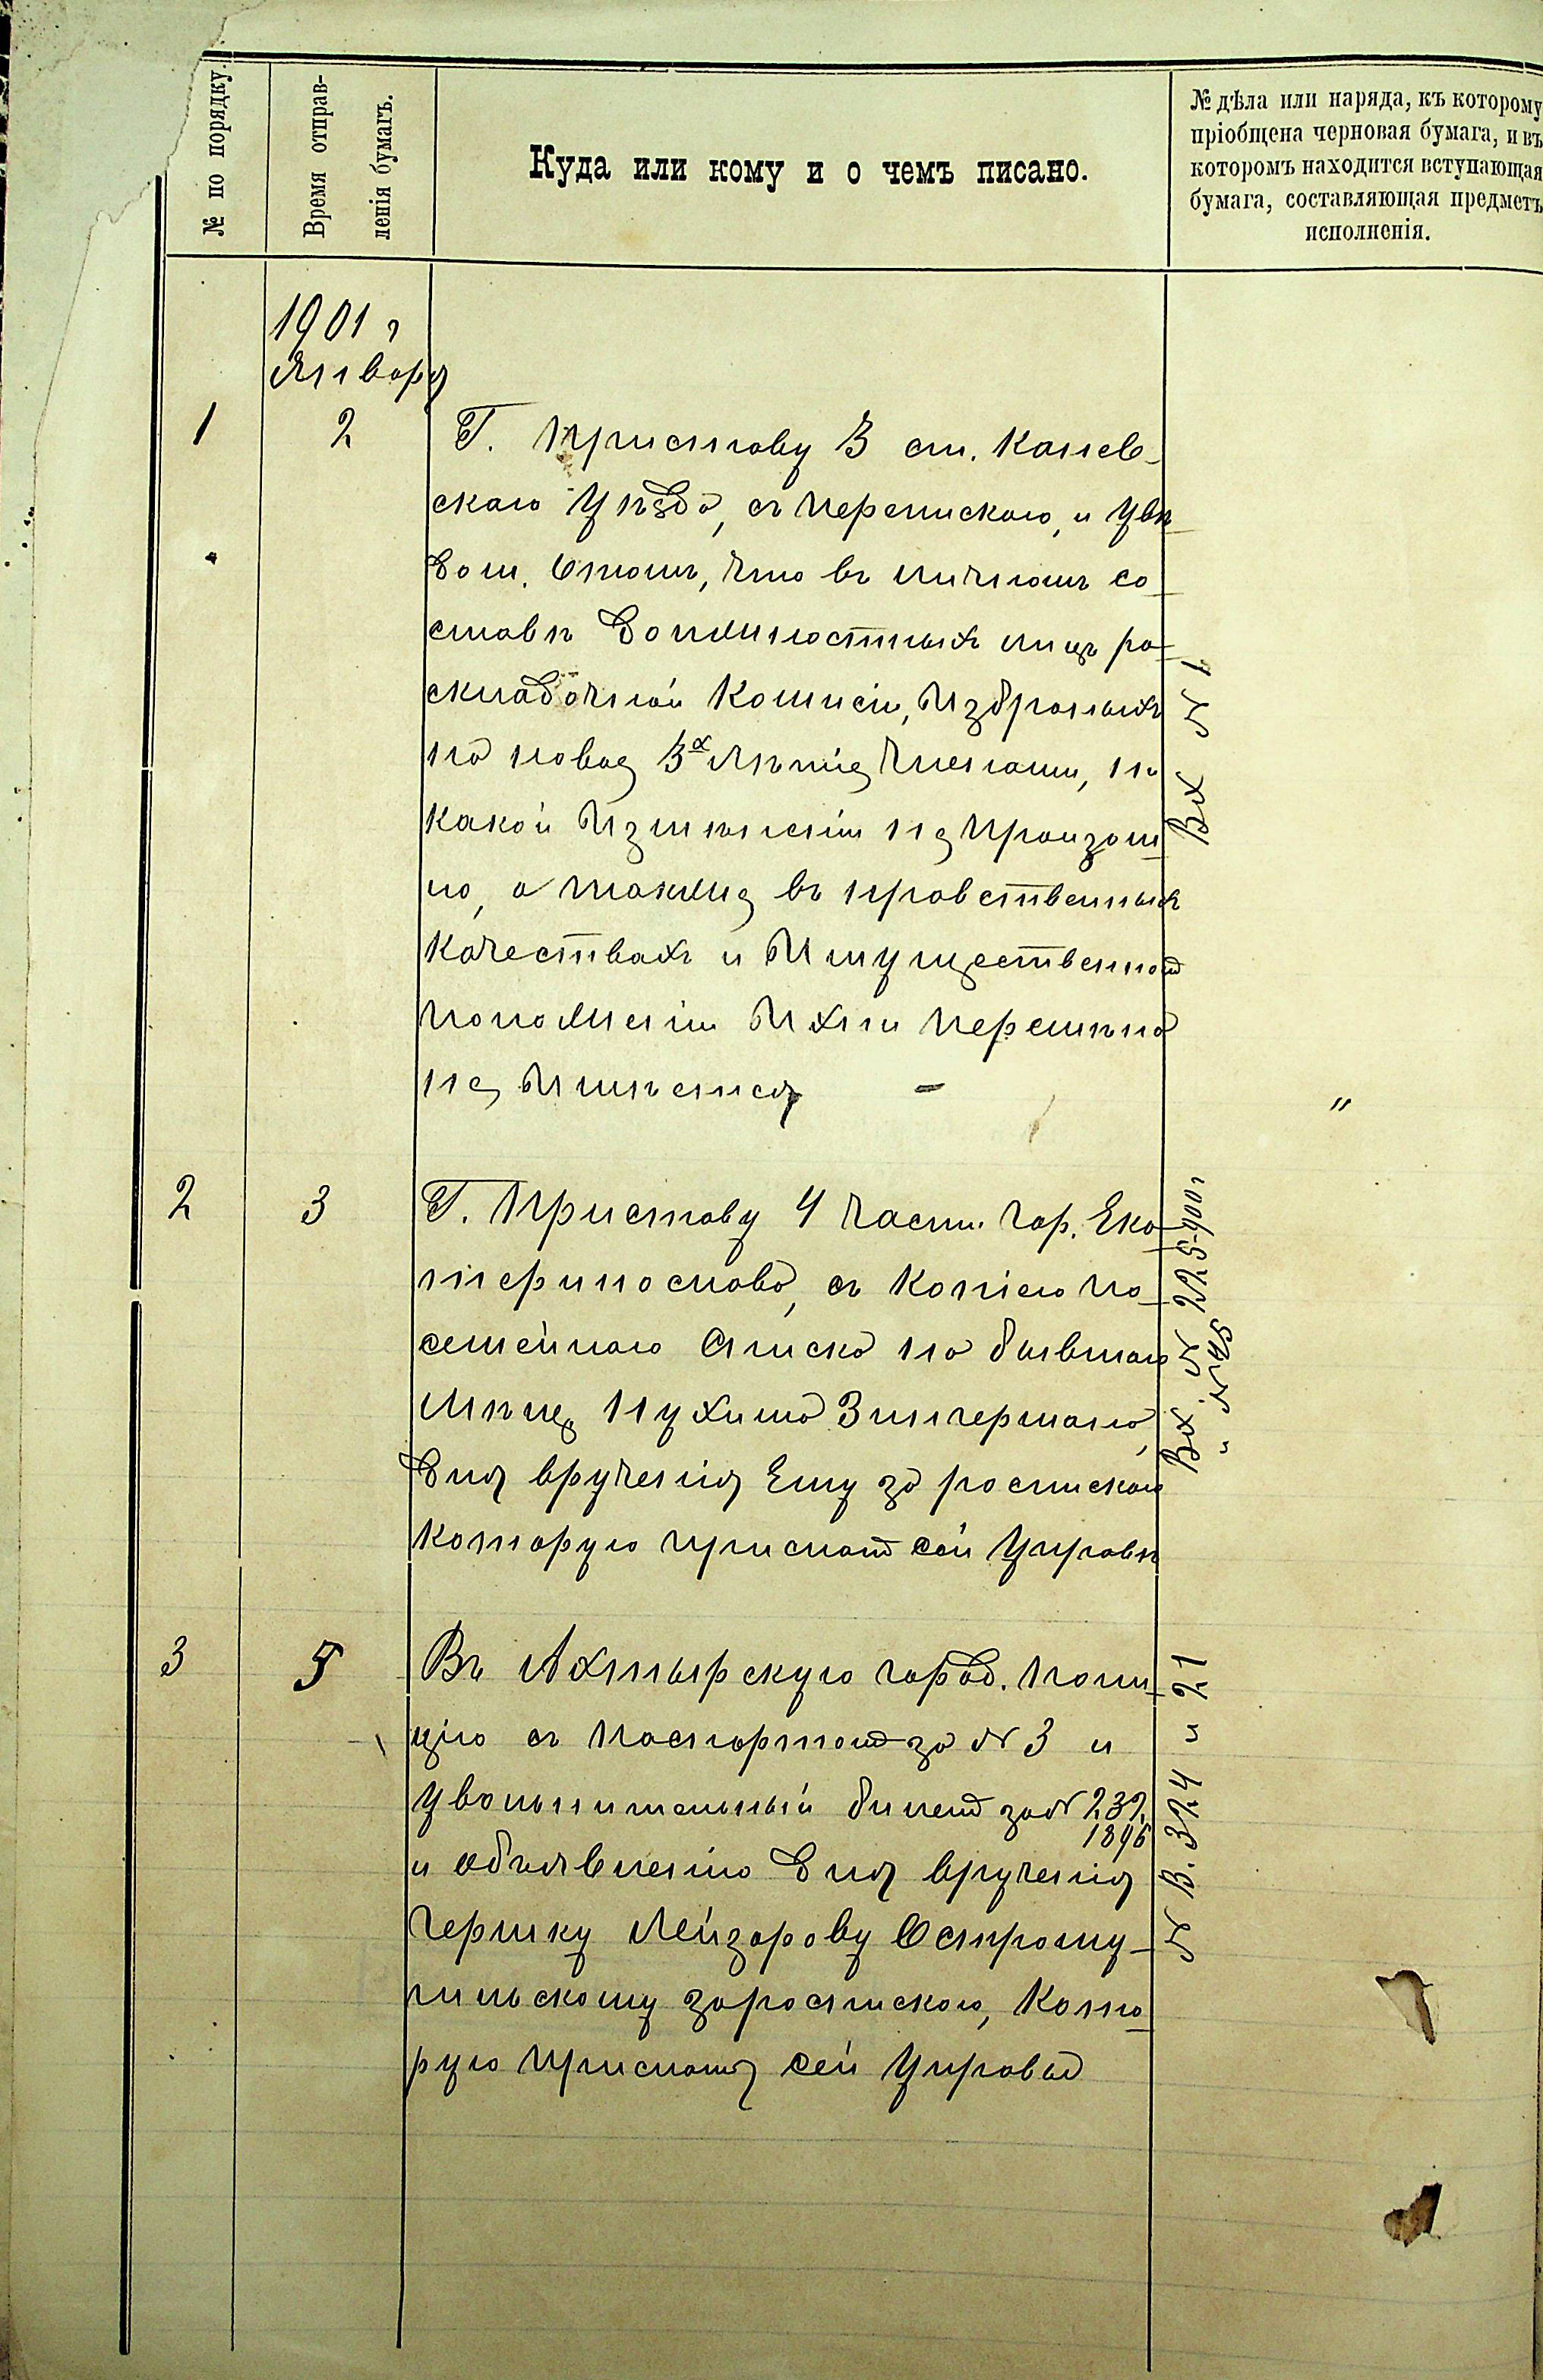 № по порядку.
Время отправ-
ленія бумагъ.
Куда или кому и о чемъ писано.
№ дѣла или наряда, къ которому
пріобщена черновая бумага, и въ
которомъ находится вступающая
бумага, составляющая предметъ
исполненія.
1901 г
Января
1 2 Г. Приставу 3 ст. Канев-
скаго Уѣзда, съ перепискою, и увѣ-
дом. о томъ, что въ личномъ со-
ставѣ должностныхъ лицъ ра-
складочной Комисіи, Избраныхъ
на новое 3х лѣтіе членами, ни
какой Измѣненіи не произош-
ло, а также въ нравственныхъ
качествахъ и Имущественном
положеніи Ихни перемѣна
не Имѣется —
Вх № 1
"
2 3 Г. Приставу 4 части гор. Ека-
теринослава, съ Копіею по-
семейнаго списка на бывшаго
Мѣщ. Нухима Зингермана,
для врученія Ему за роспискою
Которую прислат сей Управѣ
Вх. № 225-900 г
" № 45
3 5 Въ Ахтырскую город. поли-
цію съ паспортом за № 3 и
увольнительный билет за № 232
1896
и объявленію для врученія
Гершку Лейзорову Остромо-
гильскому зароспискою, Кото-
рую прислать сей Управы
№ В. 324 и 21